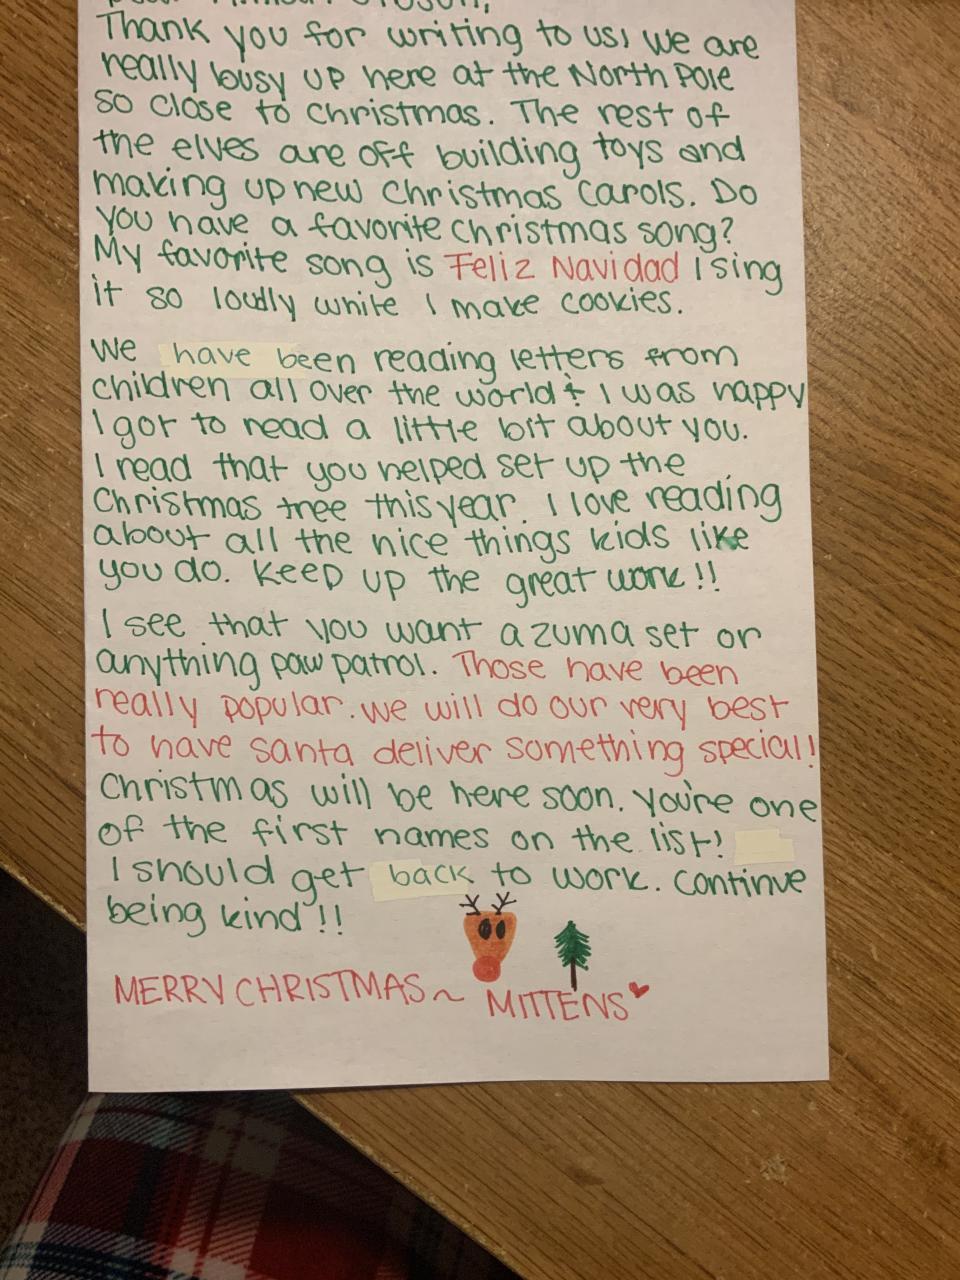 Thank you for writing to us, we are
really busy up here at the North Pole
so close to Christmas. The rest of
the elves are off building toys and
making up new Christmas Carols. Do
you have a favorite Christmas song?
My favorite song is Feliz Navidad I sing
it so loudly while I make cookies.
We have been reading letters from
children all over the world & I was happy
I got to read a little bit about you.
I read that you helped set up the
Christmas tree this year. I love reading
about all the nice things kids like
you do. Keep up the great work!!
I see that you want a zuma set or
anything paw patrol. Those have been
really popular. we will do our very best
to have santa deliver something special!
Christmas will be here soon. You're one
of the first names on the list!
I should get back to work. Continue
being kind!!
MERRY CHRISTMAS~ MITTENS